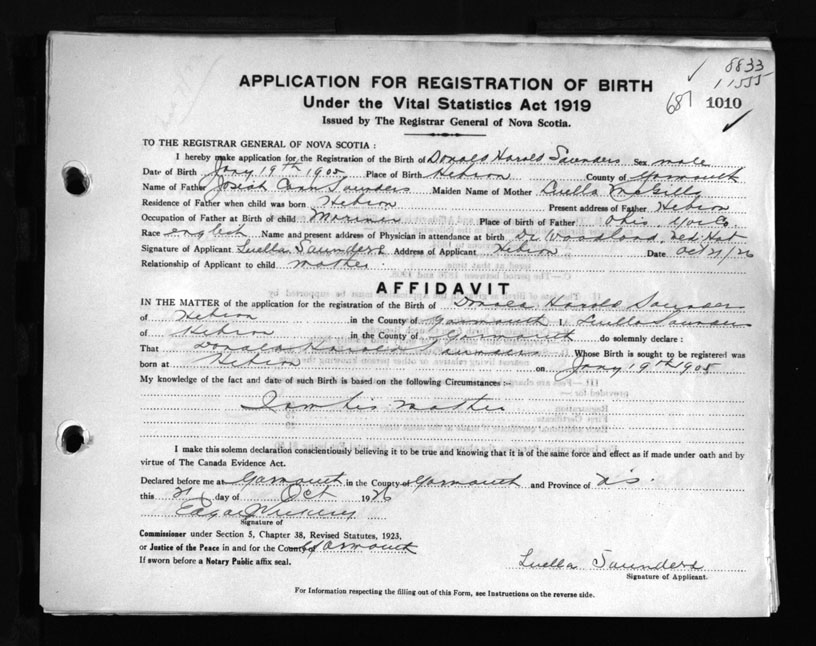 8833
11555
687 1010
APPLICATION FOR REGISTRATION OF BIRTH
Under the Vital Statistics Act 1919
Issued by The Registrar General of Nova Scotia.
TO THE REGISTRAR GENERAL OF NOVA SCOTIA :
I hereby make application for the Registration of the Birth of Donald Harold Saunders Sex male
Date of Birth Jany 19th 1905 Place of Birth Hebron County of Yarmouth
Name of Father Josiah Cann Saunders Maiden Name of Mother Luella McGill
Residence of Father when child was born Hebron Present address of Father Hebron
Occupation of Father at Birth of child Mariner Place of Birth of Father Ohio Yar Co
Race english Name and present address of Physician in attendance at birth Dr Woodland,
Signature of Applicant Luella Saunders Address of Applicant Hebron Date Oct 21/26
Relationship of Applicant to child mother
AFFIDAVIT
IN THE MATTER of the application for the registration of the Birth of Donald Harold Saunders
of Hebron in the County of Yarmouth I Luella Saunders
of Hebron in the County of Yarmouth do solemnly declare :
That Donald Harold Saunders Whose Birth is sought to be registered was
born at Hebron on Jany 19th 1905
My knowledge of the fact and date of such Birth is based on the following Circumstances :-
I am his mother
I make this solemn declaration conscientiously believing it to be true and knowing that it is of the same force and effect as if made under oath and by
virtue of The Canada Evidence Act.
Declared before me at Yarmouth in the County of Yarmouth and Province of N.S.
this 21 day of Oct 1926
Edgar
Signature of
Commissioner under Section 5, Chapter 38, Revised Statutes, 1923,
or Justice of the Peace in and for the County of Yarmouth
If sworn before a Notary Public affix seal.
Luella Saunders
Signature of Applicant.
For Information respecting the filling out of this Form, see Instructions on the reverse side.